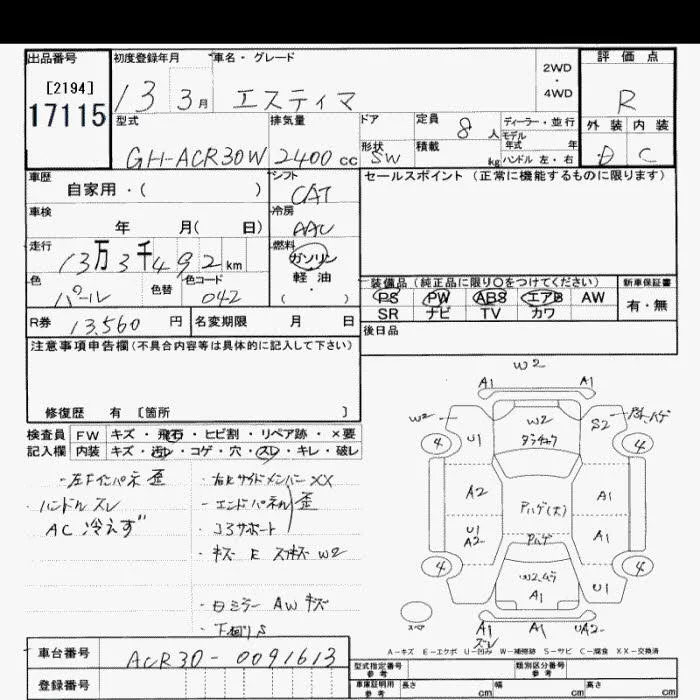 出品番号
[2194]
17115
初度登録年月
13 3月
車名・グレード
エスティマ
2WD
・
4WD
評価点
R
外装 内装
D C
型式
GH-ACR30W
排気量
2400 cc
ドア
形状
SW
定員
8人
積載
kg
ディーラー・並行
モデル
年式 年
ハンドル 左・右
車歴
自家用・( )
シフト
CAT
セールスポイント (正常に機能するものに限ります)
車検
年 月( 日)
冷房
AAC
走行
13万3千492km
燃料
ガソリン
軽油
・
( )
色
パール
色替
色コード
042
装備品 (純正品に限り〇をつけてください)
PS PW ABS エアB AW
SR ナビ TV カワ
新車保証書
有・無
R券 13,560 円
名変期限 月 日
後日品
注意事項申告欄(不具合内容等は具体的に記入して下さい)
修復歴 有 [箇所 ]
検査員 FW キズ・飛石・ヒビ割・リペア跡・×要
記入欄 内装 キズ・汚レ・コゲ・穴・スレ・キレ・破レ
・左Fインパネ 歪
・ハンドル スレ
AC 冷えず
・右Rサイドメンバー XX
・エンドパネル 歪
・コアサポート
・キズ E W2
・ミラー AW キズ
・下廻りS
W2
A1 A1
W2
W2
S2
4 4
U1
A2 A1
アハゲ(大)
U1
A2 A1
アハゲ
4 4
W2.ムラ
A1
U1
スペア
A1 A1 UA2
スレ
A-キズ E-エクボ U-凹み W-補修跡 S-サビ C-腐食 XX-交換済
車台番号 ACR30-0091613
登録番号
型式指定番号
参考
類別区分番号
参考
車庫証明用
参考
長さ cm
幅 cm
高さ cm